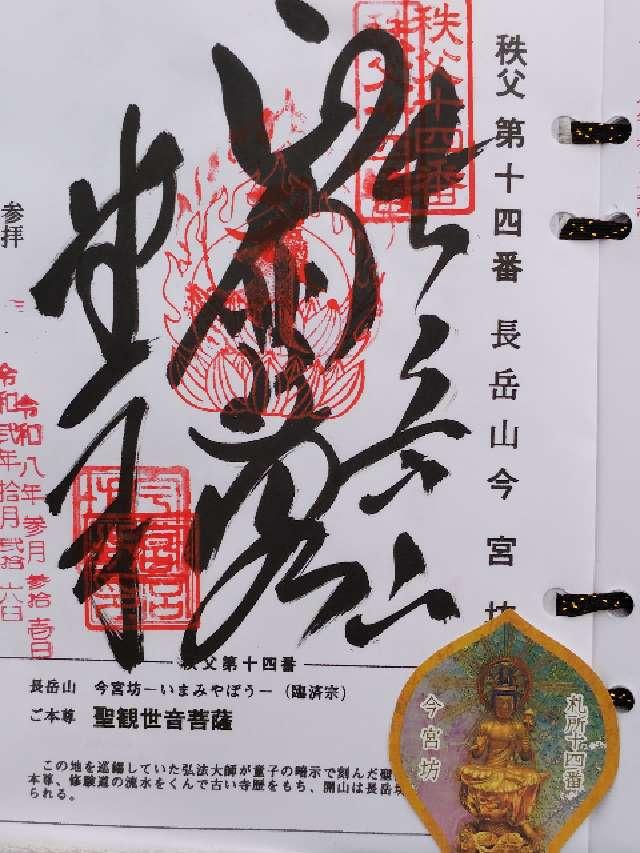 秩父 第十四番 長岳山今宮坊
秩父十四番
長岳山
参拝
令和八年参月参拾壱日
令和弐年拾月弐拾六日
秩父第十四番
長岳山 今宮坊－いまみやぼう－（臨済宗）
ご本尊 聖観世音菩薩
この地を巡錫していた弘法大師が童子の暗示で刻んだ
本尊、修験道の流水をくんで古い寺歴をもち、開山は長岳
られる。
札所十四番
今宮坊